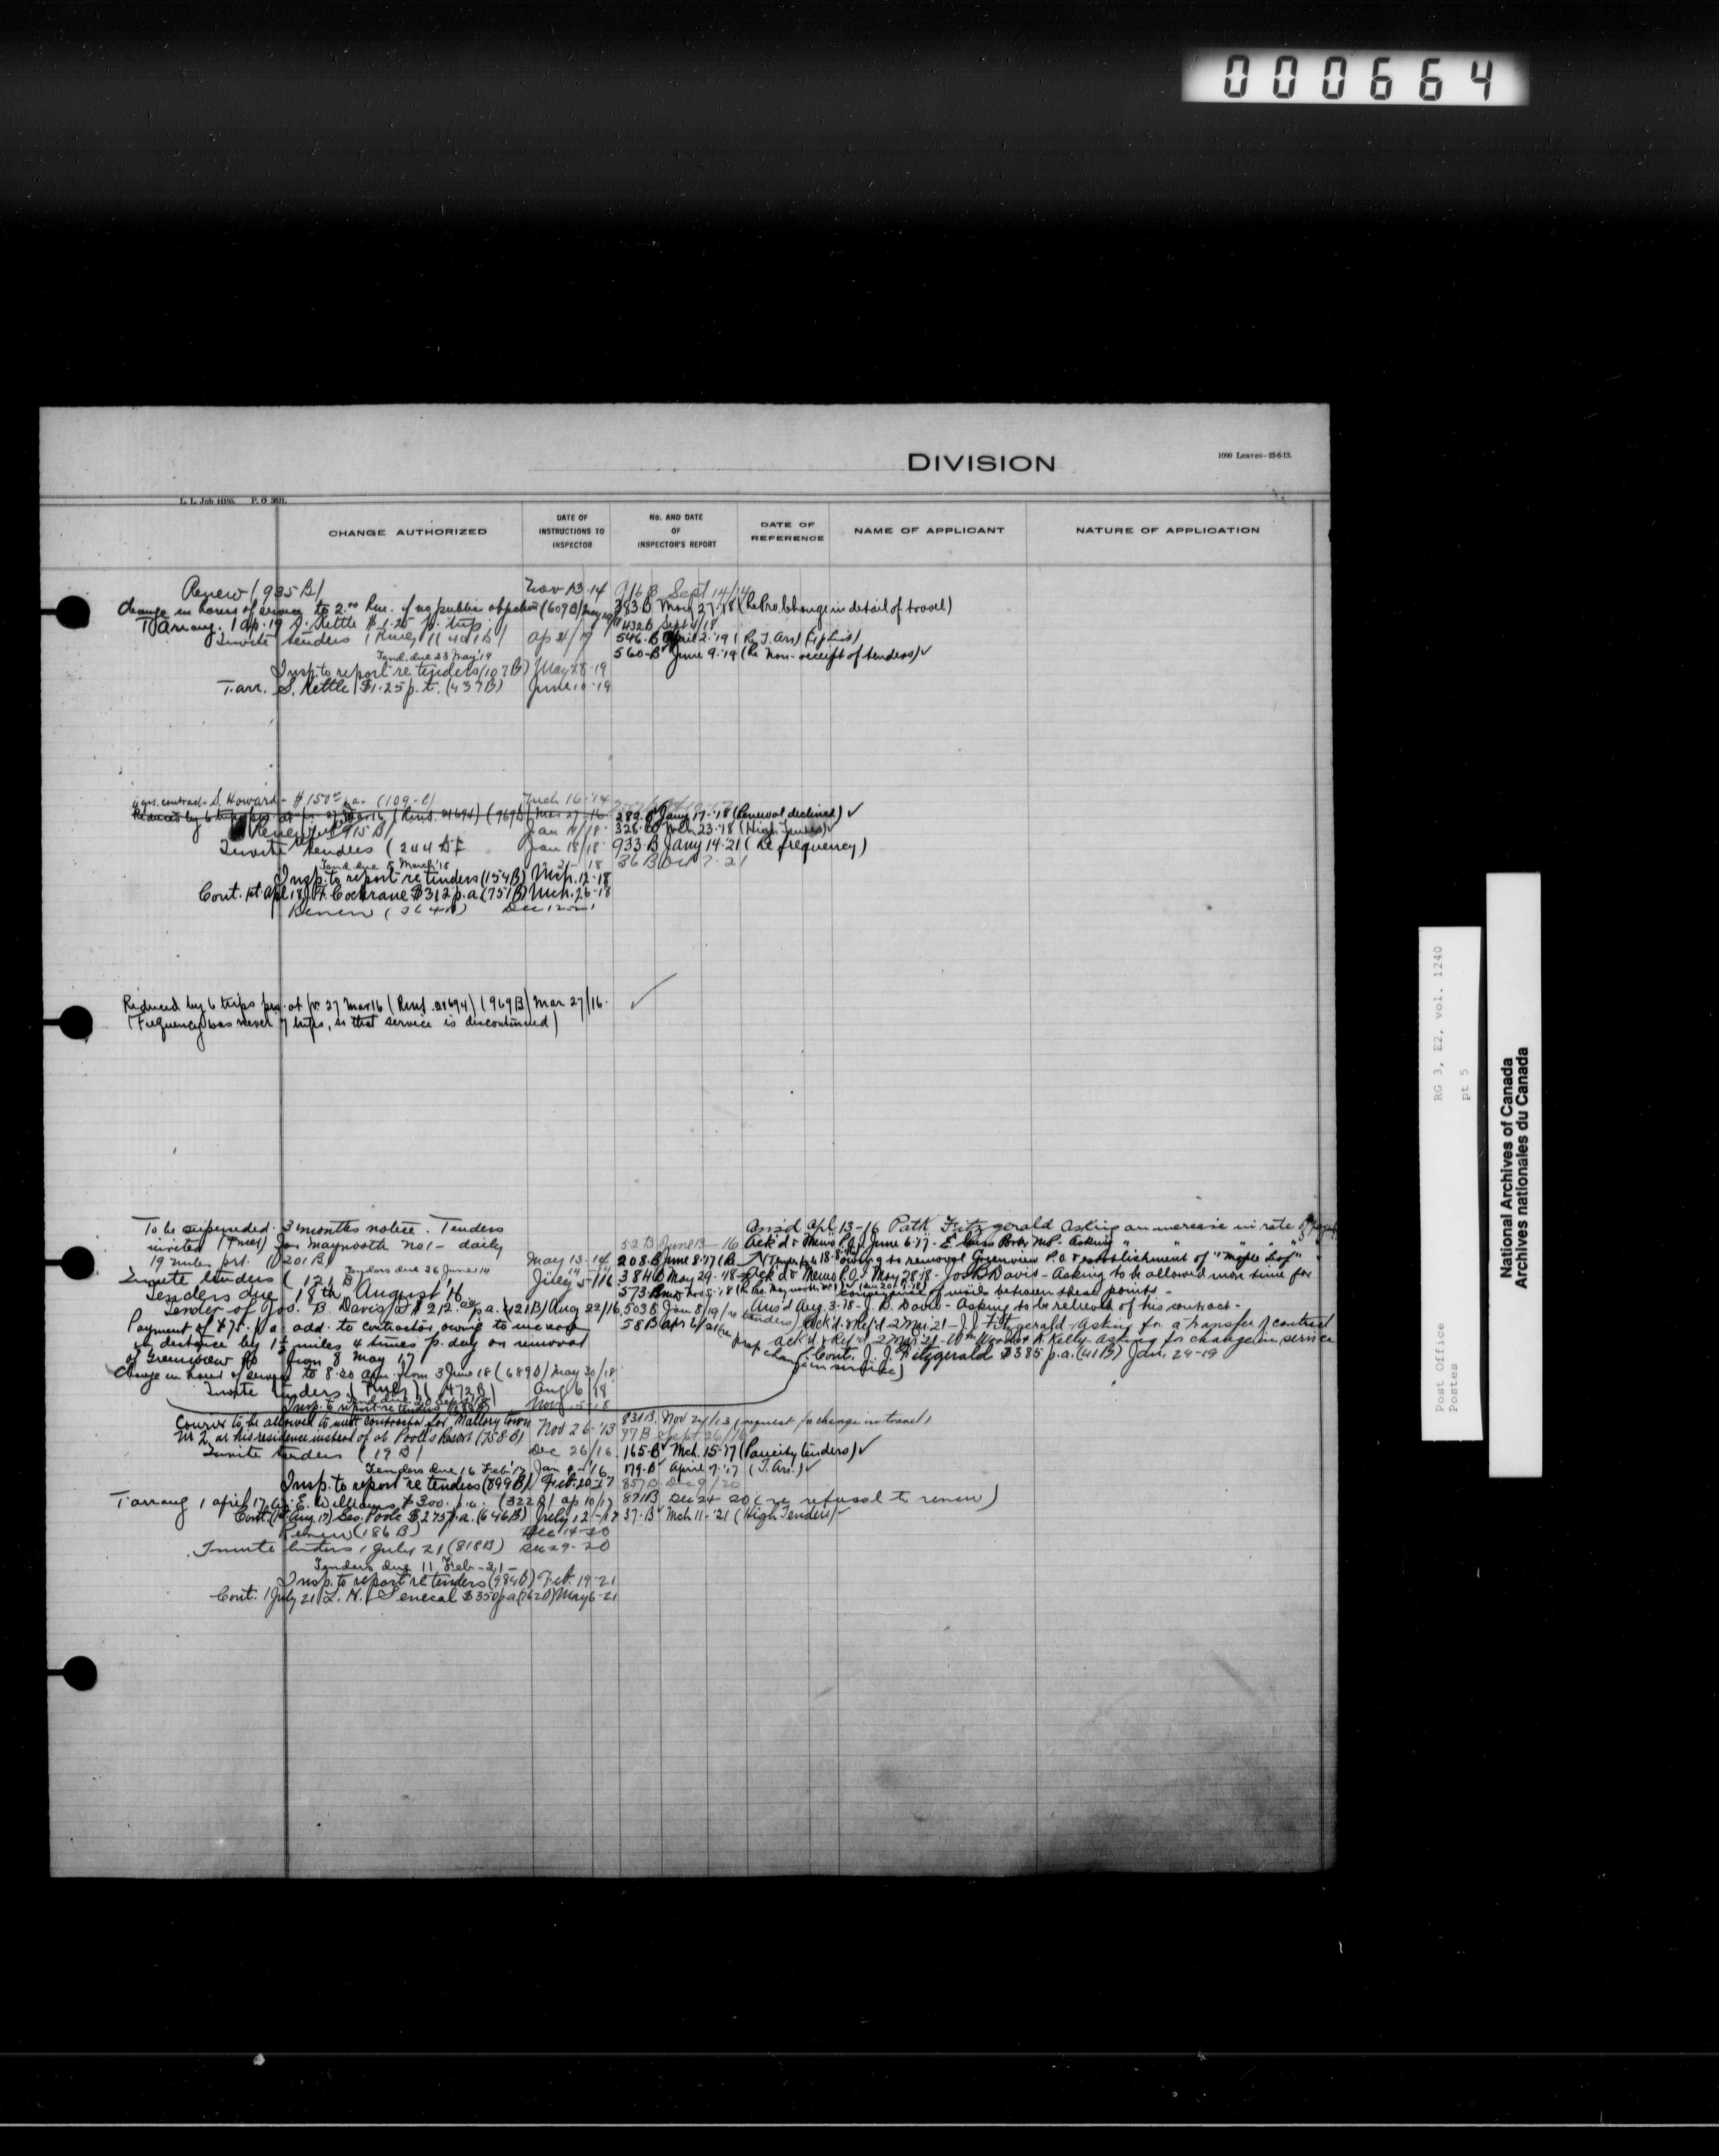 000664
DIVISION
1000 Leaves-23-6-13.
L. L. Job 44105. P. O. 3621.
CHANGE AUTHORIZED
DATE OF INSTRUCTIONS TO INSPECTOR
No. AND DATE OF INSPECTOR'S REPORT
DATE OF REFERENCE
NAME OF APPLICANT
NATURE OF APPLICATION
Renew (935 B) Nov 13-14 916 B Sept 14/14
Change in hours of service to 2.00 P.m. if no public objection (609 B) 383 B May 27-18 (Re Pro. Change in detail of travel)
T. Arrang. 1 Ap. 19 S. Kettle $1.25 p. trip 432 B Sept 4/18
Invite tenders Ap 21/19 546-B April 2-'19 (Re T. Arr)
Tend. due 23 May '19 560-B June 9-'19 (Re Non-receipt of tenders) ✓
Insp. to report re tenders (107 B) May 28-19
T. arr. S. Kettle $1.25 p. t. (437 B) June 10-19
4 yrs. contract - S. Howard - $150.00 p.a. (109-C) Mch 16-'14
Reduced by 6 trips Mar 16 (969 B) Mar 27-16 282-B Jany 17-'18 (Renewal declined) ✓
Renew (915 B) Jan 326-B Mch 23-'18 (High Tenders) ✓
Invite tenders (244 B) Jan 18/18 933-B Jany 14-21 (Re frequency)
Tend. due 8 March '18 36 B Oct 7-21
Insp. to report re tenders (154 B) Mch. 12-18
Cont. 1st Apl. 18 J. F. Cochrane $312 p.a. (751 B) Mch. 26-18
Renew Dec 12-21
Reduced by 6 trips p.w. at fr. 27 Mar 16 (Rmf. 21694) (969 B) Mar 27/16. ✓
(Frequency was never 7 trips, so that service is discontinued)
To be superseded. 3 months notice. Tenders
invited for Maynooth No 1 - daily
19 miles p.r.t. (201 B) May 13-14
Invite tenders (121 B) Tenders due 26 June 14
Tenders due 18th August '16 July 5-16
Tender of Jos. B. Davis @ $212.00 p.a. (421 B) Aug 22/16
Payment of $75. p.a. add. to contractor owing to increase
in distance by 1½ miles 4 times p. day on removal
of Greenview PO from 8 May 17
Change in hour of service to 8.20 a.m. from 3 June 18 (689 B) May 30/18
Invite tenders (472 B) Aug 6/18
Insp. to report re tenders Nov 15-18
Ans'd Apl 13-16 Patk Fitzgerald Asking an increase in rate of pay
52 B June 13-16 Ack'd & Memo P.O.I June 6-'17 - E. Guss Porter M.P. Asking " " " " "
208-B June 8-'17 owing to removal Greenview P.O. & establishment of "Maple Leaf" "
384 B May 29-'18 Ack'd & Memo P.O.I May 28-18 - Jos. B. Davis - Asking to be allowed more time for
conveyance of mails between these points -
503 B Jan 8/19 re tenders Ans'd Aug. 3-18 - J. B. Davis - Asking to be relieved of his contract -
58 B Apr 6/21 (re prop change in service) Ack'd & Ref'd 2 Mar. 21 - J. J. Fitzgerald - Asking for a transfer of contract
Ack'd & Ref'd 2 Mar. 21 - Wm Woods & R. Kelly - asking for change in service
Cont. J. J. Fitzgerald $385 p.a. (41 B) Jan. 24-19
Courier to be allowed to meet contractor for Mallorytown
No 2 at his residence instead of at Poole's Resort (758 B) Nov 26-'13 831 B Nov 24/13 (request for change in travel)
Invite tenders (19 B) Dec 26/16 77 B Sept 26/16
165-B Mch. 15-'17 (Paucity tenders) ✓
Tenders due 16 Feb '17 179-B April 7-'17 (T. Arr.) ✓
Insp. to report re tenders (899 B) Feb. 20-17 857 B Dec 9/20
T. arrang 1 April 17 E. Williams $300. p.a. (322 B) Ap 10/17 891 B Dec 24-20 (re refusal to renew)
Cont. (1st Aug. 17) Geo. Poole $275 p.a. (646 B) July 12-17 37-B Mch 11-'21 (High Tenders) ✓
Renew (186 B) Dec 14-20
Invite tenders 1 July 21 (818 B) Dec 29-20
Tenders due 11 Feb-21-
Insp. to report re tenders (984 B) Feb. 19-21
Cont. 1 July 21 L. H. Senecal $350 p.a. (762 B) May 6-21
RG 3, E2, vol. 1240
pt 5
Post Office
Postes
National Archives of Canada
Archives nationales du Canada